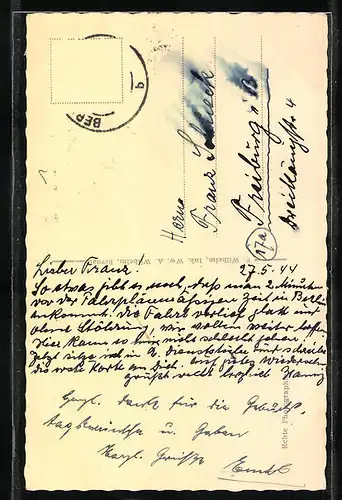 BER
b
Herrn
Franz
Freiburg i/B
Dreikönigstr 4
(17a)
Wilhelm, Inh. Ww. A. Wilhelm,
Echte Photograph
27.5.44
Lieber Franz!
So etwas gibt es noch, daß man 2 Minuten
vor der Fahrplanmäßigen Zeit in Berlin
ankommt. Die Fahrt verlief glatt und
ohne Störung, wir wollen weiter hoffen.
Hier kann es mir nicht schlecht gehen.
Jetzt sitze ich in d. Dienststelle und schreibe
die erste Karte an Dich. Auf gutes Wiedersehn
grüßt recht herzlich
Herzl. Dank für die Geburts-
tagswünsche u. Gaben
Herzl. Grüße